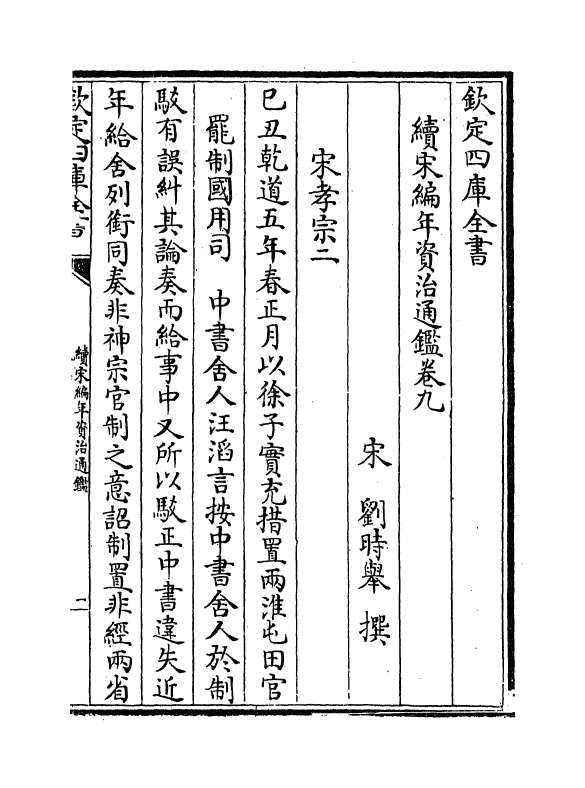 欽定四庫全書
續宋編年資治通鑑卷九
宋 劉時舉 撰
宋孝宗二
已丑乾道五年春正月以徐子實充措置兩淮屯田官
罷制國用司 中書舍人汪滔言按中書舍人於制
駮有誤糾其論奏而給事中又所以駮正中書違失近
年給舍列銜同奏非神宗官制之意詔制置非經兩省
欽定四庫全書
續宋編年資治通鑑
二